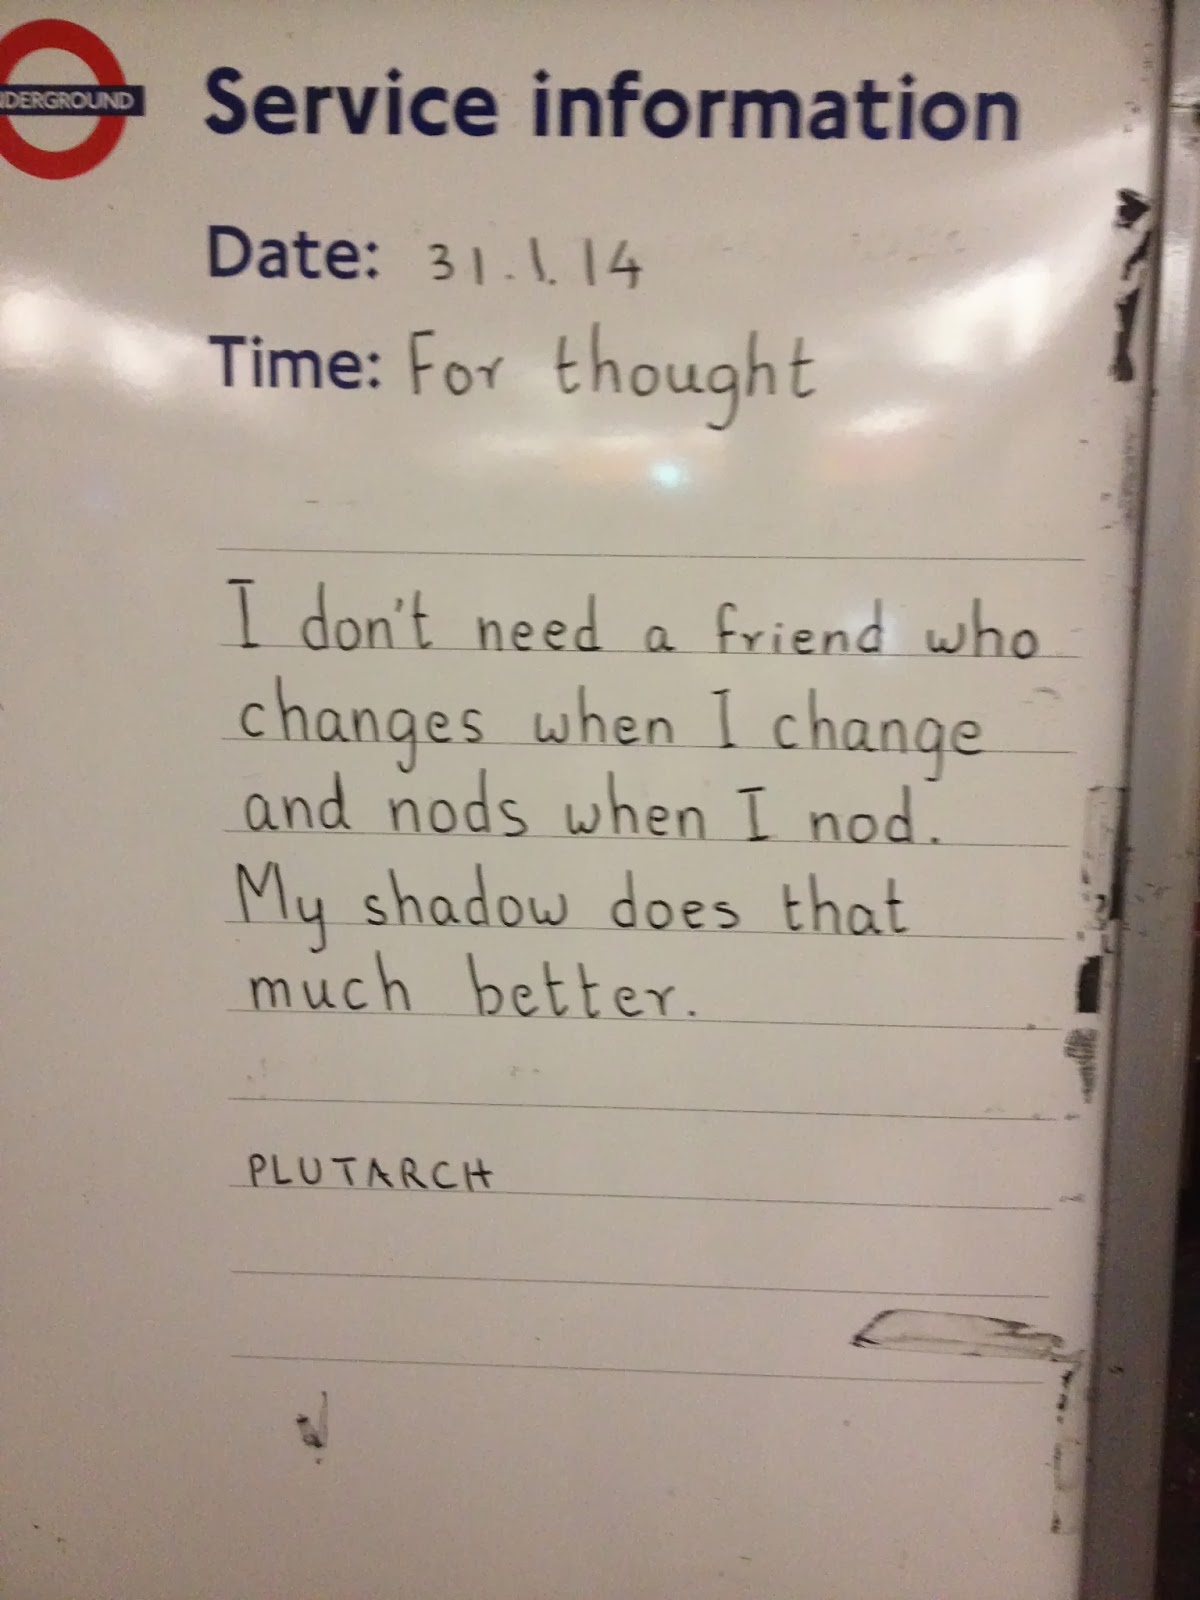 UNDERGROUND
Service information
Date: 31.1.14
Time: For thought
I don't need a friend who
changes when I change
and nods when I nod.
My shadow does that
much better.
PLUTARCH